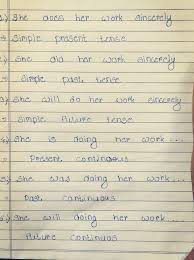 1) She does her work sincerely
= Simple present tense
2) She did her work sincerely
= Simple past tense
3) She will do her work sincerely
= Simple future tense
4) She is doing her work ...
= Present continuous
5) She was doing her work ....
= Past continuous
6) She will doing her work ....
= Future continuos